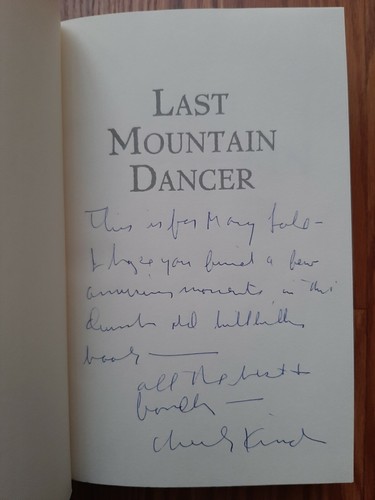 LAST
MOUNTAIN
DANCER
This is for Mary
I hope you find a few
amusing moments in this
old hillbilly
book —
all the best +
fondly —
Chuck Kinder